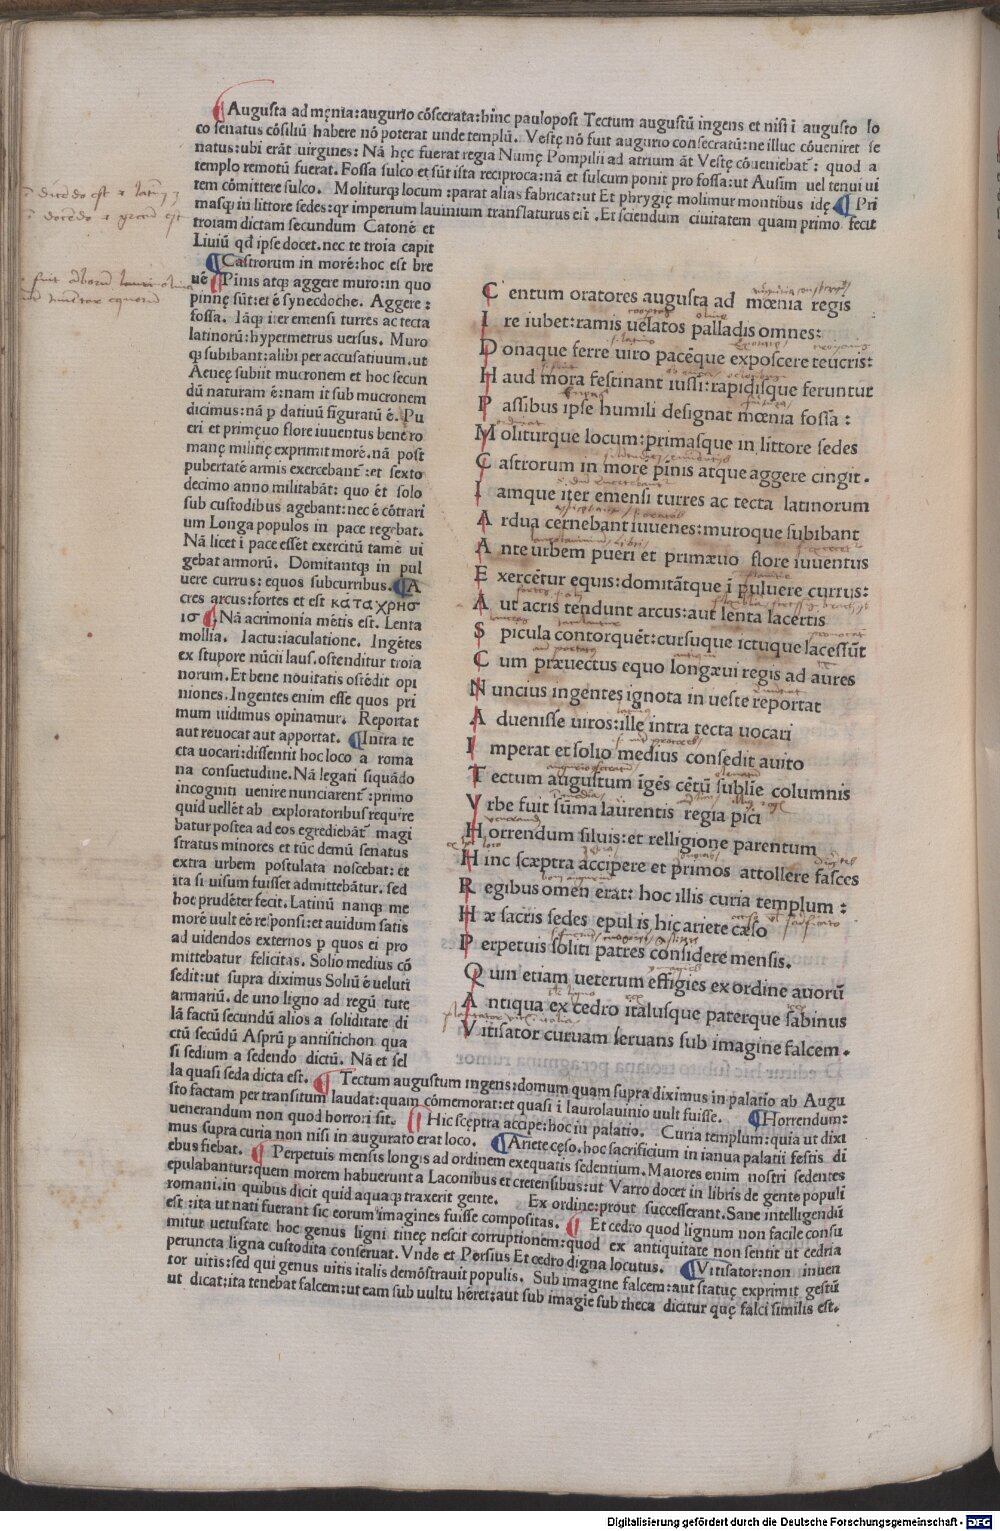 ¶Augusta ad męnia:augurio cōsecrata:hinc paulopost Tectum augustū ingens et nisi ī augusto lo
co senatus cōsiliū habere nō poterat unde templū. Vestę nō fuit augurio consecratū:ne illuc cōueniret se
natus:ubi erāt uirgines: Nā hęc fuerat regia Numę Pompilii ad atrium āt Vestę cōueniebat: quod a
templo remotū fuerat. Fossa sulco et sūt ista reciproca:nā et sulcum ponit pro fossa:ut Ausim uel tenui ui
tem cōmittere sulco. Moliturq locum:parat alias fabricat:ut Et phrygię molimur montibus idę ¶Pri
masq in littore sedes:qr imperium lauinium translaturus eit .Et sciendum ciuitatem quam primo fecit
troiam dictam secundum Catonē et
Liuiū qd ipse docet.nec te troia capit
¶Castrorum in morē:hoc est bre
uē ¶Pinis atq aggere muro:in quo
pinnę sūt:et ē synecdoche. Aggere:
fossa. Iāq iter emensi turres ac tecta
latinorū:hypermetrus uersus. Muro
q subibant:alibi per accusatiuum.ut
Aeneę subiit mucronem et hoc secun
dū naturam ē:nam it sub mucronem
dicimus:nā p datiuū figuratū ē. Pu
eri et primęuo flore iuuentus bene ro
manę militię exprimit morē.nā post
pubertatē armis exercebant:et sexto
decimo anno militabāt: quo ēt solo
sub custodibus agebant:nec ē cōtrari
um Longa populos in pace regebat.
Nā licet ī pace esset exercitū tamē ui
gebat armorū. Domitantq in pul
uere currus:equos subcurribus. ¶A
cres arcus:fortes et est κατα χρησ
ισ ¶.Nā acrimonia mētis est. Lenta
mollia. Iactu:iaculatione. Ingētes
ex stupore nūcii laus.ostenditur troia
norum.Et bene nouitatis ostēdit opi
niones.Ingentes enim esse quos pri
mum uidimus opinamur. Reportat
aut reuocat aut apportat. ¶Intra te
cta uocari:dissentit hoc loco a roma
na consuetudine.Nā legati siquādo
incogniti uenire nunciarent:primo
quid uellēt ab exploratoribus require
batur postea ad eos egrediebāt magi
stratus minores et tūc demū senatus
extra urbem postulata noscebat:et
ita si uisum fuisset admittebātur.sed
hoc prudēter fecit.Latinū nanq me
morē uult eē responsi:et auidum satis
ad uidendos externos p quos ei pro
mittebatur felicitas. Solio medius cō
sedit:ut supra diximus Soliū ē ueluti
armariū. de uno ligno ad regū tute
lā factū secundū alios a soliditate di
ctū secūdū Asprū p antistichon qua
si sedium a sedendo dictū. Nā et sel
la quasi seda dicta est. ¶ Tectum augustum ingens:domum quam supra diximus in palatio ab Augu
sto factam per transitum laudat:quam cōmemorat:et quasi ī laurolauinio uult fuisse. ¶Horrendum:
uenerandum non quod horrori sit. ¶ Hic scęptra accipe:hoc in palatio. Curia templum:quia ut dixi
mus supra curia non nisi in augurato erat loco. ¶Ariete cęso.hoc sacrificium in ianua palatii festis di
ebus fiebat. ¶ Perpetuis mensis longis ad ordinem exequatis sedentium.Maiores enim nostri sedentes
epulabantur:quem morem habuerunt a Laconibus et cretensibus:ut Varro docet in libris de gente populi
romani.in quibus dicit quid aquaq traxerit gente. Ex ordine:prout successerant.Sane intelligendū
est :ita ut nati fuerant sic eorum imagines fuisse compositas. ¶ Et cedro quod lignum non facile consu
mitur uetustate hoc genus ligni tineę nescit corruptionem:quod ex antiquitate non sentit ut cedria
peruncta ligna custodita conseruat. Vnde et Persius Et cedro digna locutus. ¶Vitisator:non inuen
tor uitis:sed qui genus uitis italis demōstrauit populis. Sub imagine falcem:aut statuę exprimit gestū
ut dicat:ita tenebat falcem:ut eam sub uultu hēret:aut sub imagīe sub theca dicitur quę falci similis est.
C entum oratores augusta ad mœnia regis
I re iubet:ramis uelatos palladis omnes:
D onaque ferre uiro pacēque exposcere teucris:
H aud mora festinant iussi:rapidisque feruntur
P assibus ipse humili designat mœnia fossa:
M oliturque locum:primasque in littore sedes
C astrorum in more pinis atque aggere cingit.
I amque iter emensi turres ac tecta latinorum
A rdua cernebant iuuenes:muroque subibant
A nte urbem pueri et primæuo flore iuuentus
E xercētur equis:domitātque ī puluere currus:
A ut acris tendunt arcus:aut lenta lacertis
S picula contorquēt:cursuque ictuque lacessūt
C um præuectus equo longæui regis ad aures
N uncius ingentes ignota in ueste reportat
A duenisse uiros:ille intra tecta uocari
I mperat et solio medius consedit auito
T ectum augustum īgēs cētū sublīe columnis
V rbe fuit sūma laurentis regia pici
H orrendum siluis:et relligione parentum
H inc scæptra accipere et primos attollere fasces
R egibus omen erat: hoc illis curia templum:
H æ sacris sedes epulis hic ariete cæso
P erpetuis soliti patres considere mensis.
Q uin etiam ueterum effigies ex ordine auorū
A ntiqua ex cedro italusque paterque sabinus
V itisator curuam seruans sub imagine falcem.
Digitalisierung gefördert durch die Deutsche Forschungsgemeinschaft - DFG